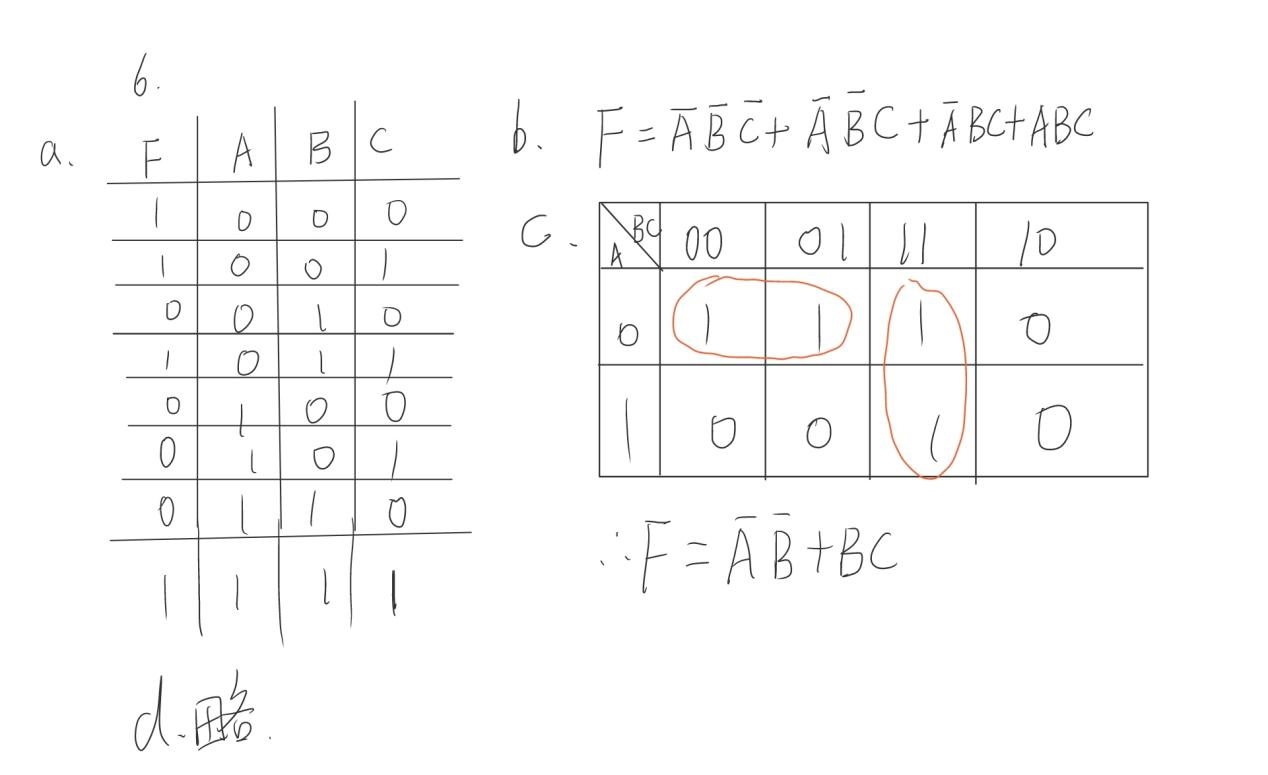 6.
a.
F A B C
1 0 0 0
1 0 0 1
0 0 1 0
1 0 1 1
0 1 0 0
0 1 0 1
0 1 1 0
1 1 1 1
b. F = A̅ B̅ C̅ + A̅ B̅ C + A̅ BC + ABC
C.
A BC 00 01 11 10
0 1 1 1 0
1 0 0 1 0
∴F = A̅ B̅ + BC
d.略.